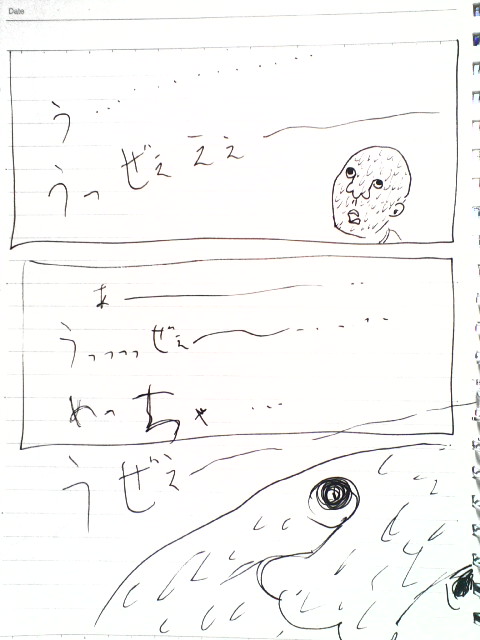 Date
う・・・・・・・・・・・・
うっぜぇぇぇ――
あ―――・・
うっっっっぜぇ――・・・・・
めっちゃ・・・
うぜぇ――